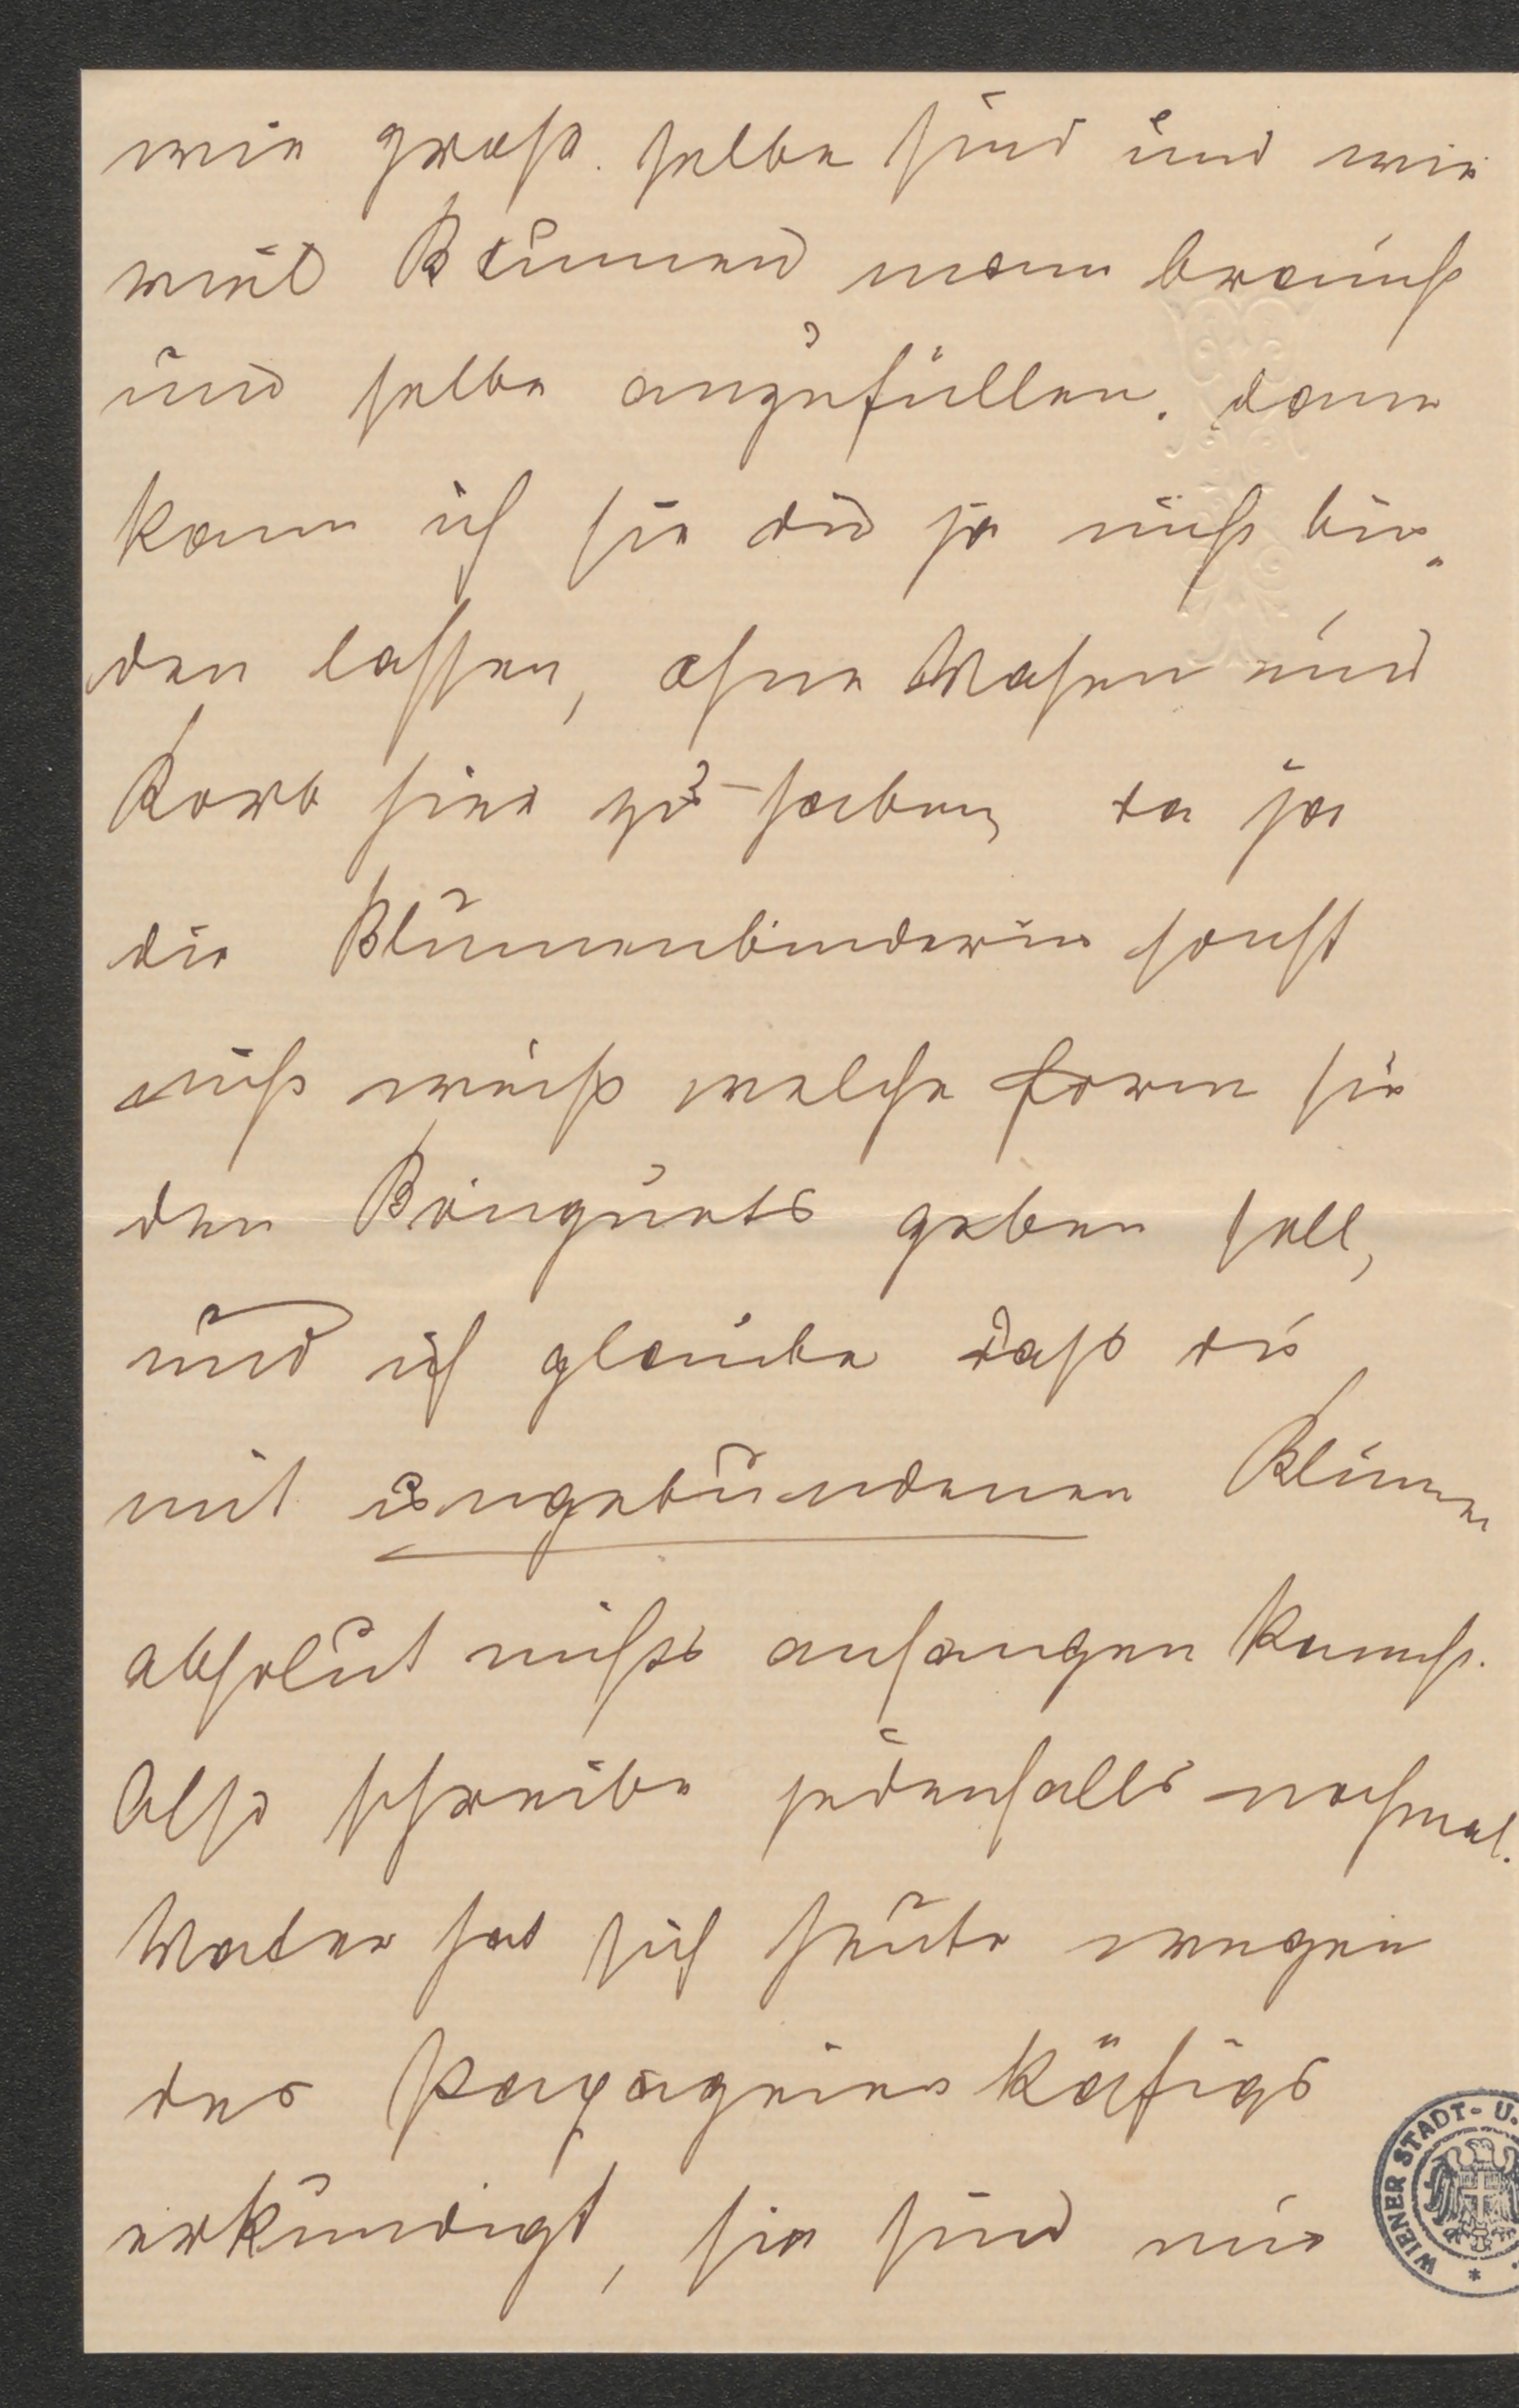 wie groß selbe sind und wie
viel Blumen man brauch
und selbe anzufüllen. dann
kann ich sie dir ja nicht bin„
den lassen, ohne Vasen und
Korb hier zu haben, da ja
die Blumenbinderin sonst
nicht weiß welche Form sie
den Bouquets geben soll,
und ich glaube daß du
mit ungebundenen Blumen
absolut nichts anfangen kannst.
Also schreibe jedenfalls nochmal.
Vater hat sich heute wegen
des Papageien Käfigs
erkundigt, sie sind nur
WIENER STADT- U.